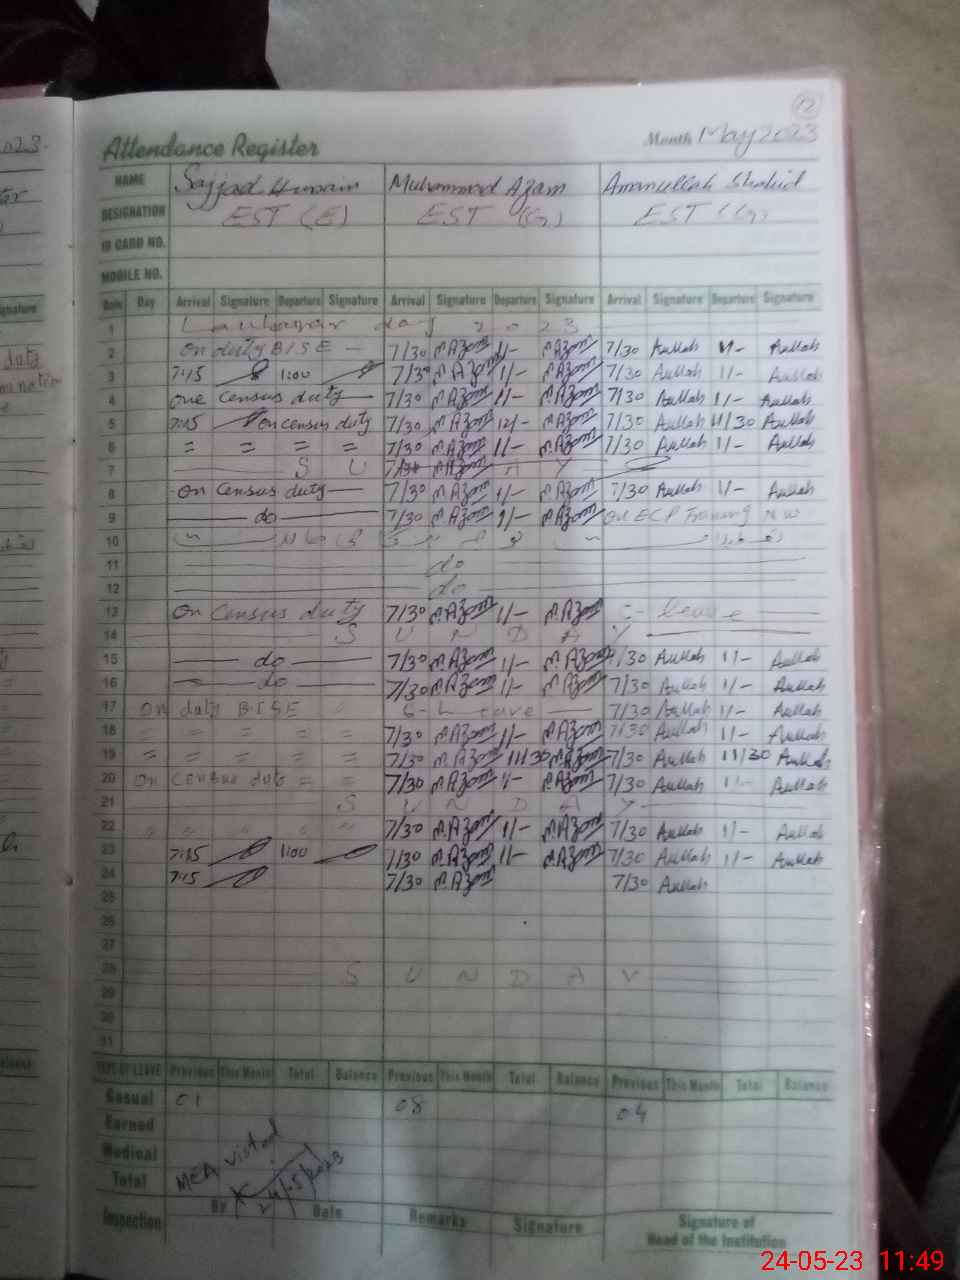 12
Attendance Register Month May 2023
NAME Sajjad Husain Muhammad Azam Amanullah Shahid
DESIGNATION EST (E) EST (G) EST (G)
ID CARD NO.
MOBILE NO.
Date Day Arrival Signature Departure Signature Arrival Signature Departure Signature Arrival Signature Departure Signature
1 day 2023
2 On duty BISE — 7/30 M.Azam 1/- M.Azam 7/30 Aullah 1/- Aullah
3 7:15 1:00 7/30 M.Azam 1/- M.Azam 7/30 Aullah 1/- Aullah
4 One Census duty 7/30 M.Azam 1/- M.Azam 7/30 Aullah 1/- Aullah
5 7:15 on census duty 7/30 M.Azam 12/- M.Azam 7/30 Aullah 11/30 Aullah
6 = = = = 7/30 M.Azam 1/- M.Azam 7/30 Aullah 1/- Aullah
7 S U A Y
8 On Census duty 7/30 M.Azam 1/- M.Azam 7/30 Aullah 1/- Aullah
9 do 7/30 M.Azam 1/- M.Azam On ECP Training
10
11 do
12 do
13 On Census duty 7/30 M.Azam 1/- M.Azam C- leave
14 S U N D A Y
15 do 7/30 M.Azam 1/- M.Azam 7/30 Aullah 1/- Aullah
16 do 7/30 M.Azam 1/- M.Azam 7/30 Aullah 1/- Aullah
17 On duty BISE Leave 7/30 Aullah 1/- Aullah
18 = = = = 7/30 M.Azam 1/- M.Azam 7/30 Aullah 1/- Aullah
19 = = = = 7/30 M.Azam 11/30 M.Azam 7/30 Aullah 11/30 Aullah
20 On census duty = = 7/30 M.Azam 1/- M.Azam 7/30 Aullah 1/- Aullah
21 S U N D A Y
22 " " " " 7/30 M.Azam 1/- M.Azam 7/30 Aullah 1/- Aullah
23 7:15 1:00 7/30 M.Azam 1/- M.Azam 7/30 Aullah 1/- Aullah
24 7:15 7/30 M.Azam 7/30 Aullah
25
26
27
28 S U N D A Y
29
30
31
TYPE OF LEAVE Previous This Month Total Balance Previous This Month Total Balance Previous This Month Total Balance
Casual 01 08 04
Earned
Medical
Total
MEA visted
24/5/2023
Inspection By Date Remarks Signature Signature of
Head of the Institution
24-05-23 11:49